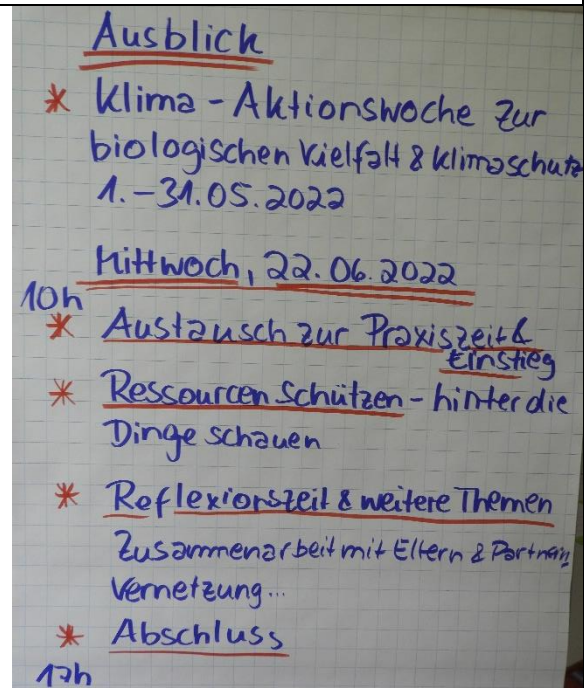 Ausblick
* Klima-Aktionswoche zur
biologischen Vielfalt & Klimaschutz
1.-31.05.2022
Mittwoch, 22.06.2022
10h
* Austausch zur Praxiszeit &
Einstieg
* Ressourcen schützen - hinter die
Dinge schauen
* Reflexionszeit & weitere Themen
Zusammenarbeit mit Eltern & Partnern,
Vernetzung...
* Abschluss
17h